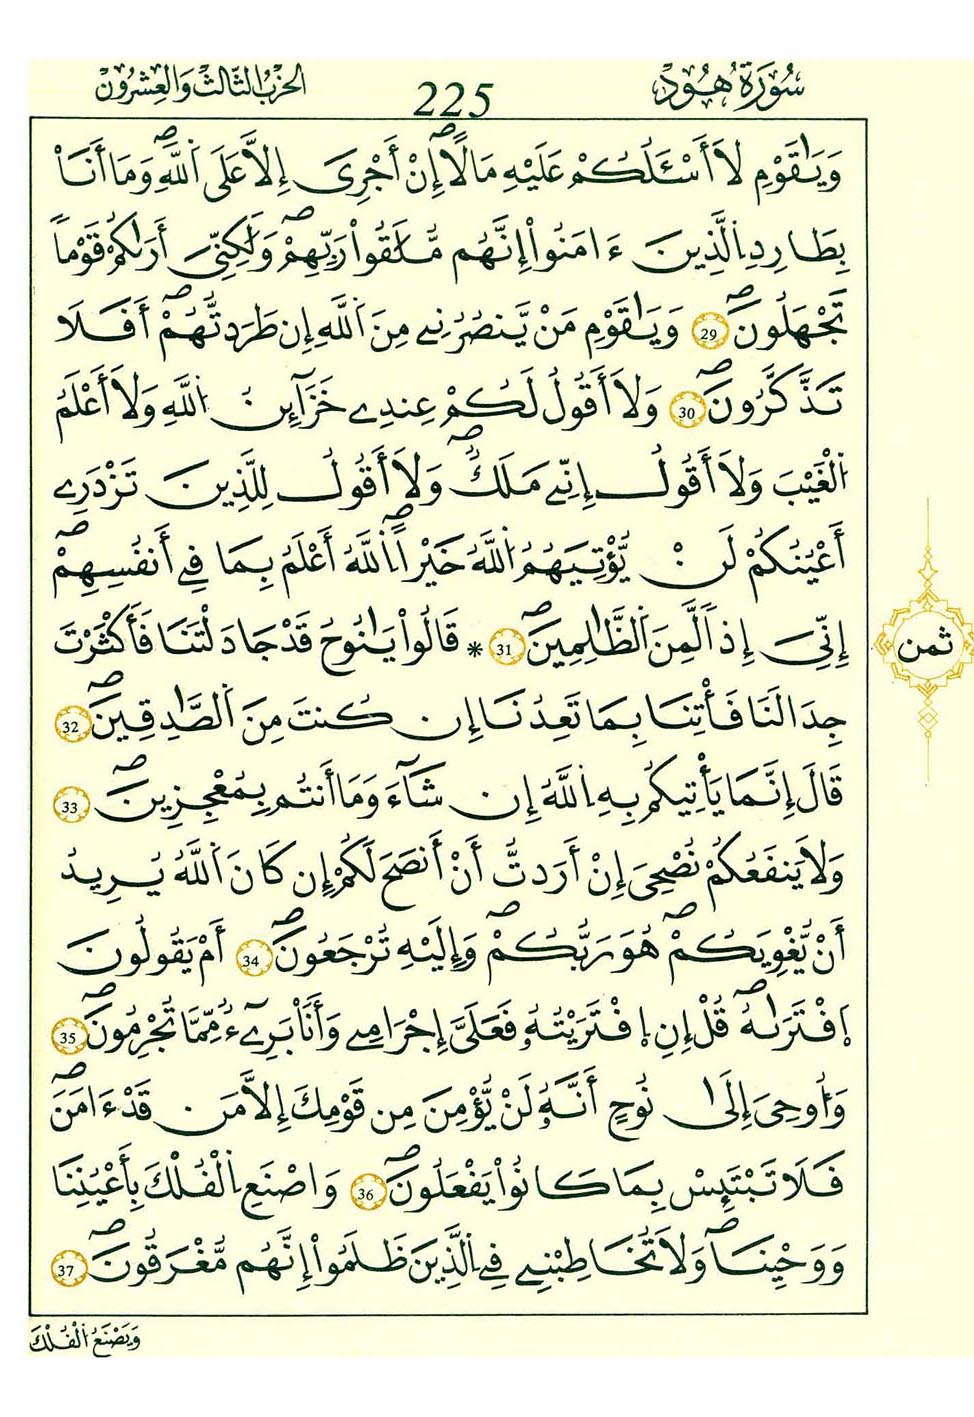 سُورَةُ هُود
225
الحزب الثالث والعشرون
وَيَٰقَوْمِ لَا أَسْـَٔلُكُمْ عَلَيْهِ مَالًا إِنْ أَجْرِىَ إِلَّا عَلَى اَللَّهِ وَمَا أَنَا۠
بِطَارِدِ اِلَّذِينَ ءَامَنُوا۟ إِنَّهُم مُّلَٰقُوا۟ رَبِّهِمْ وَلَٰكِنِّىَ أَر۪ىٰكُمْ قَوْماً
تَجْهَلُونَ 29 وَيَٰقَوْمِ مَنْ يَّنصُرُنِے مِنَ اَللَّهِ إِن طَرَدتُّهُمْ أَفَلَا
تَذَّكَّرُونَ 30 وَلَا أَقُولُ لَكُمْ عِندِے خَزَآئِنُ اُللَّهِ وَلَا أَعْلَمُ
اُلْغَيْبَ وَلَا أَقُولُ إِنِّے مَلَكٌ وَلَا أَقُولُ لِلَّذِينَ تَزْدَرِے
أَعْيُنُكُمْ لَنْ يُّؤْتِيَهُمُ اُللَّهُ خَيْراً اَللَّهُ أَعْلَمُ بِمَا فِے أَنفُسِهِمْ
إِنِّىَ إِذاً لَّمِنَ اَلظَّٰلِمِينَ 31 * قَالُوا۟ يَٰنُوحُ قَدْ جَادَلْتَنَا فَأَكْثَرْتَ
ثمن
جِدَالَنَا فَأْتِنَا بِمَا تَعِدُنَا إِن كُنتَ مِنَ اَلصَّٰدِقِينَ 32
قَالَ إِنَّمَا يَأْتِيكُم بِهِ اِللَّهُ إِن شَآءَ وَمَا أَنتُم بِمُعْجِزِينَ 33
وَلَا يَنفَعُكُمْ نُصْحِىَ إِنْ أَرَدتُّ أَنْ أَنصَحَ لَكُمْ إِن كَانَ اَللَّهُ يُرِيدُ
أَنْ يُّغْوِيَكُمْ هُوَ رَبُّكُمْ وَإِلَيْهِ تُرْجَعُونَ 34 أَمْ يَقُولُونَ
اَ۪فْتَر۪ىٰهُ قُلْ إِنِ اِ۪فْتَرَيْتُهُۥ فَعَلَىَّ إِجْرَامِے وَأَنَا۠ بَرِےٓءٌ مِّمَّا تُجْرِمُونَ 35
وَأُوحِىَ إِلَىٰ نُوحٍ أَنَّهُۥ لَنْ يُّؤْمِنَ مِن قَوْمِكَ إِلَّا مَن قَدْ ءَامَنَ
فَلَا تَبْتَئِسْ بِمَا كَانُوا۟ يَفْعَلُونَ 36 وَاصْنَعِ اِلْفُلْكَ بِأَعْيُنِنَا
وَوَحْيِنَا وَلَا تُخَٰطِبْنِے فِے اِلَّذِينَ ظَلَمُوا۟ إِنَّهُم مُّغْرَقُونَ 37
وَيَصْنَعُ اُلْفُلْكَ